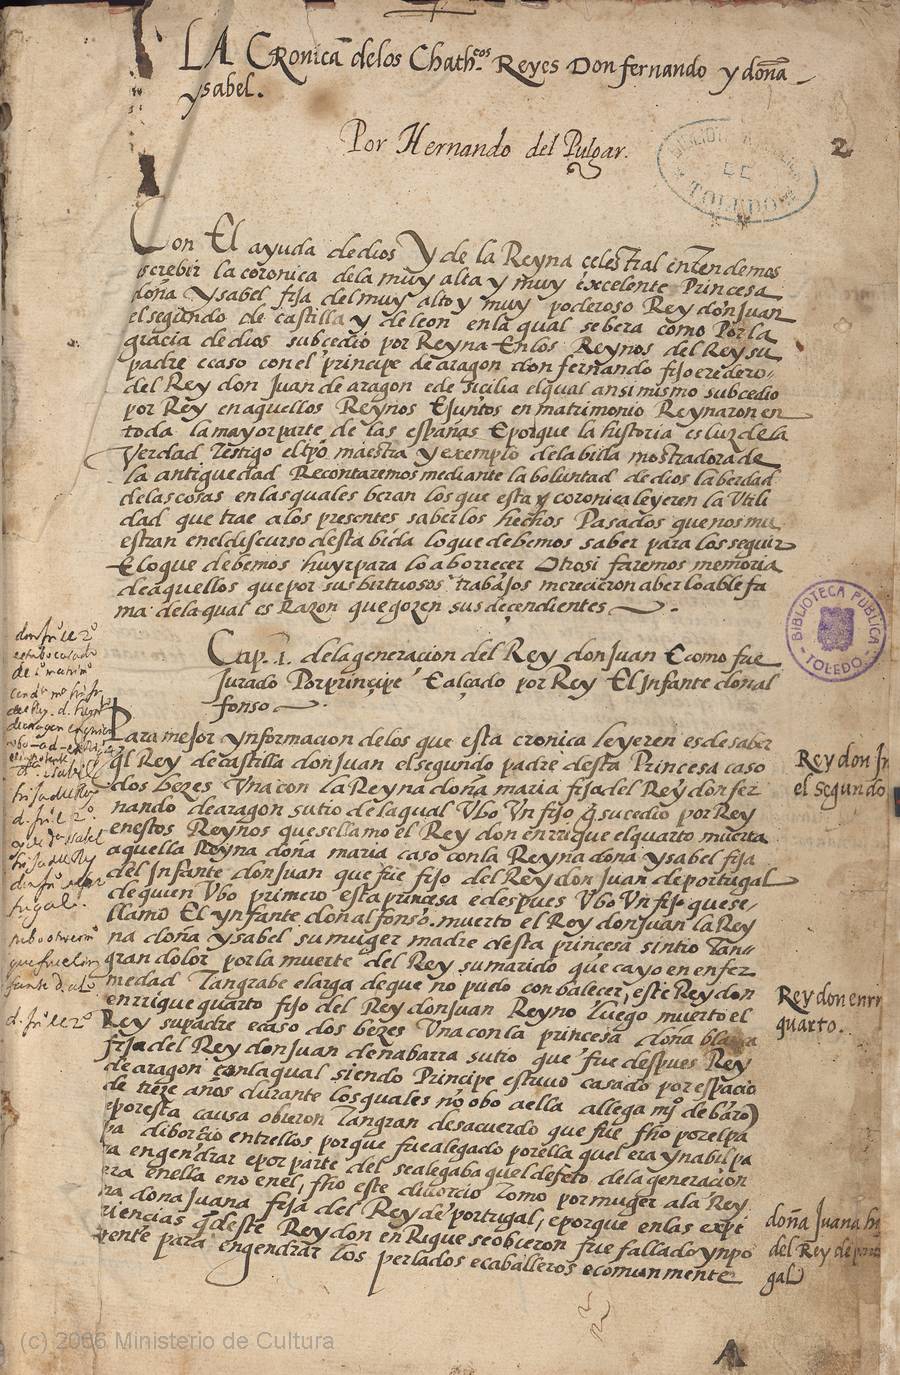 LA Cronica de los Chath.cos Reyes Don fernando y doña
ysabel.
Por Hernando del Pulgar.
BIBLIOTECA
DE
TOLEDO
2
Con El ayuda de dios Y de la Reyna celestial entendemos
screbir la coronica dela muy alta y muy excelente Princesa
doña Ysabel fija del muy alto y muy poderoso Rey don Juan
el segundo de castilla y de leon en la qual se bera como Por la
gracia de dios subcedio por Reyna En los Reynos del Rey su
padre e caso con el principe de aragon don fernando fijo eredero
del Rey don Juan de aragon e de sicilia el qual ansi mismo subcedio
por Rey en aquellos Reynos E juntos en matrimonio Reynaron en
toda la mayor parte de las españas E porque la historia es luz de la
Verdad testigo del tpo maestra y exemplo de la bida mostradora de
la antiguedad Recontaremos mediante la boluntad de dios la berdad
de las cosas en las quales beran los que esta coronica leyeren la Utili
dad que trae a los presentes saber los hechos Pasados que nos mu
estran en el discurso desta bida lo que debemos saber para lo seguir
E lo que debemos huyr para lo aborrecer Otrosi faremos memoria
de aquellos que por sus birtuosos trabajos merecieron aber loable fa
ma de la qual es Razon que gozen sus decendientes
Cap. 1. de la generacion del Rey don Juan E como fue
Jurado Por principe E alçado por Rey El Infante don al
fonso
BIBLIOTECA PUBLICA
TOLEDO
Para mejor ynformacion de los que esta cronica leyeren es de saber
ql Rey de castilla don Juan el segundo padre desta Princesa caso
dos bezes Una con la Reyna doña maria fija del Rey don fer
nando de aragon su tio de la qual Ubo Un fijo q sucedio por Rey
en estos Reynos que se llamo el Rey don enrrique el quarto muerta
aquella Reyna doña maria caso con la Reyna doña ysabel fija
del Infante don Juan que fue fijo del Rey don Juan de portugal
de quien Ubo primero esta princesa e despues Ubo Un fijo que se
llamo El ynfante don alfonso. muerto el Rey don Juan la Rey
na doña ysabel su muger madre desta princesa sintio tan
gran dolor por la muerte del Rey su marido que cayo en enfer
medad Tan grabe e larga de que no pudo conbalecer, este Rey don
enrrique quarto fijo del Rey don Juan Reyno luego muerto el
Rey su padre e caso dos bezes Una con la princesa doña blanca
fija del Rey don Juan de nabarra su tio que fue despues Rey
de aragon con la qual siendo Principe estuvo casado por espacio
de treze años durante los quales no obo a ella allegamj.o de baro
e por esta causa obieron Tan gran desacuerdo que fue fho por el pa
pa diborcio entrellos porque fue alegado por ella quel era ynabil pa
ra engendrar e por parte del se alegaba quel defeto de la generacion
era en ella e no en el, fho este divorcio tomo por muger a la Rey
na dona Juana fija del Rey de portugal, e porque en las expe
riencias q de este Rey don enRique se obieron fue fallado ynpo
tente para engendrar los perlados e caballeros e comunmente
Rey don Ju
el segundo
Rey don enrri
quarto.
doña Juana hi
del Rey de portu
gal
A
(c) 2006 Ministerio de Cultura